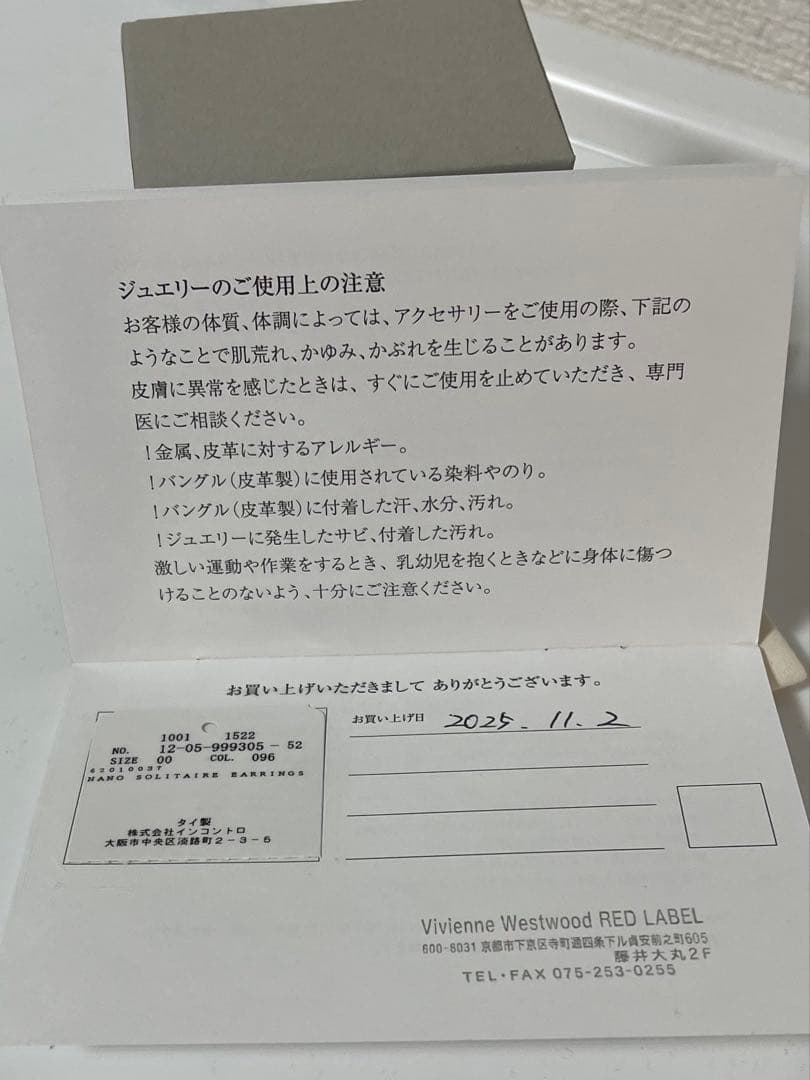 ジュエリーのご使用上の注意
お客様の体質、体調によっては、アクセサリーをご使用の際、下記の
ようなことで肌荒れ、かゆみ、かぶれを生じることがあります。
皮膚に異常を感じたときは、すぐにご使用を止めていただき、専門
医にご相談ください。
！金属、皮革に対するアレルギー。
！バングル（皮革製）に使用されている染料やのり。
！バングル（皮革製）に付着した汗、水分、汚れ。
！ジュエリーに発生したサビ、付着した汚れ。
激しい運動や作業をするとき、乳幼児を抱くときなどに身体に傷つ
けることのないよう、十分にご注意ください。
お買い上げいただきまして ありがとうございます。
1001 1522
NO. 12-05-999305-52
SIZE 00 COL. 096
62010037
NANO SOLITAIRE EARRINGS
タイ製
株式会社インコントロ
大阪市中央区淡路町2-3-5
お買い上げ日 2025.11.2
Vivienne Westwood RED LABEL
600-8031 京都市下京区寺町通四条下ル貞安前之町605
藤井大丸2F
TEL・FAX 075-253-0255